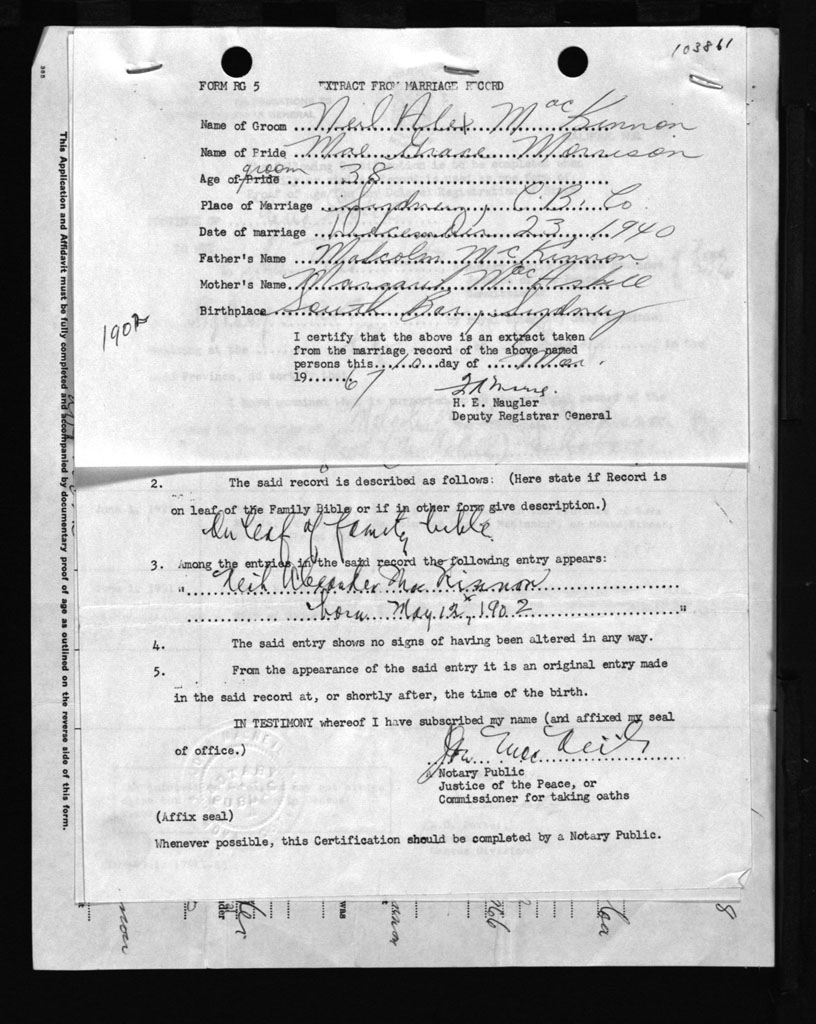 103861
FORM RG 5 EXTRACT FROM MARRIAGE RECORD
Name of Groom Neil Alex MacKinnon
Name of Bride Mae Grace Morrison
groom
Age of Bride 38
Place of Marriage Sydney, C.B. Co
Date of marriage December 23, 1940
Father's Name Malcolm McKinnon
Mother's Name Margaret MacAskill
Birthplace South Bar, Sydney
1902
I certify that the above is an extract taken
from the marriage record of the above named
persons this 10 day of Mar.
19 67
H. E. Naugler
Deputy Registrar General
2. The said record is described as follows: (Here state if Record is
on leaf of the Family Bible or if in other form give description.)
On leaf of family bible.
3. Among the entries in the said record the following entry appears:
" Neil Alexander MacKinnon
born May 12, 1902 "
4. The said entry shows no signs of having been altered in any way.
5. From the appearance of the said entry it is an original entry made
in the said record at, or shortly after, the time of the birth.
IN TESTIMONY whereof I have subscribed my name (and affixed my seal
of office.)
Notary Public
Justice of the Peace, or
Commissioner for taking oaths
(Affix seal)
Whenever possible, this Certification should be completed by a Notary Public.
This Application and Affidavit must be fully completed and accompanied by documentary proof of age as outlined on the reverse side of this form.
was
8